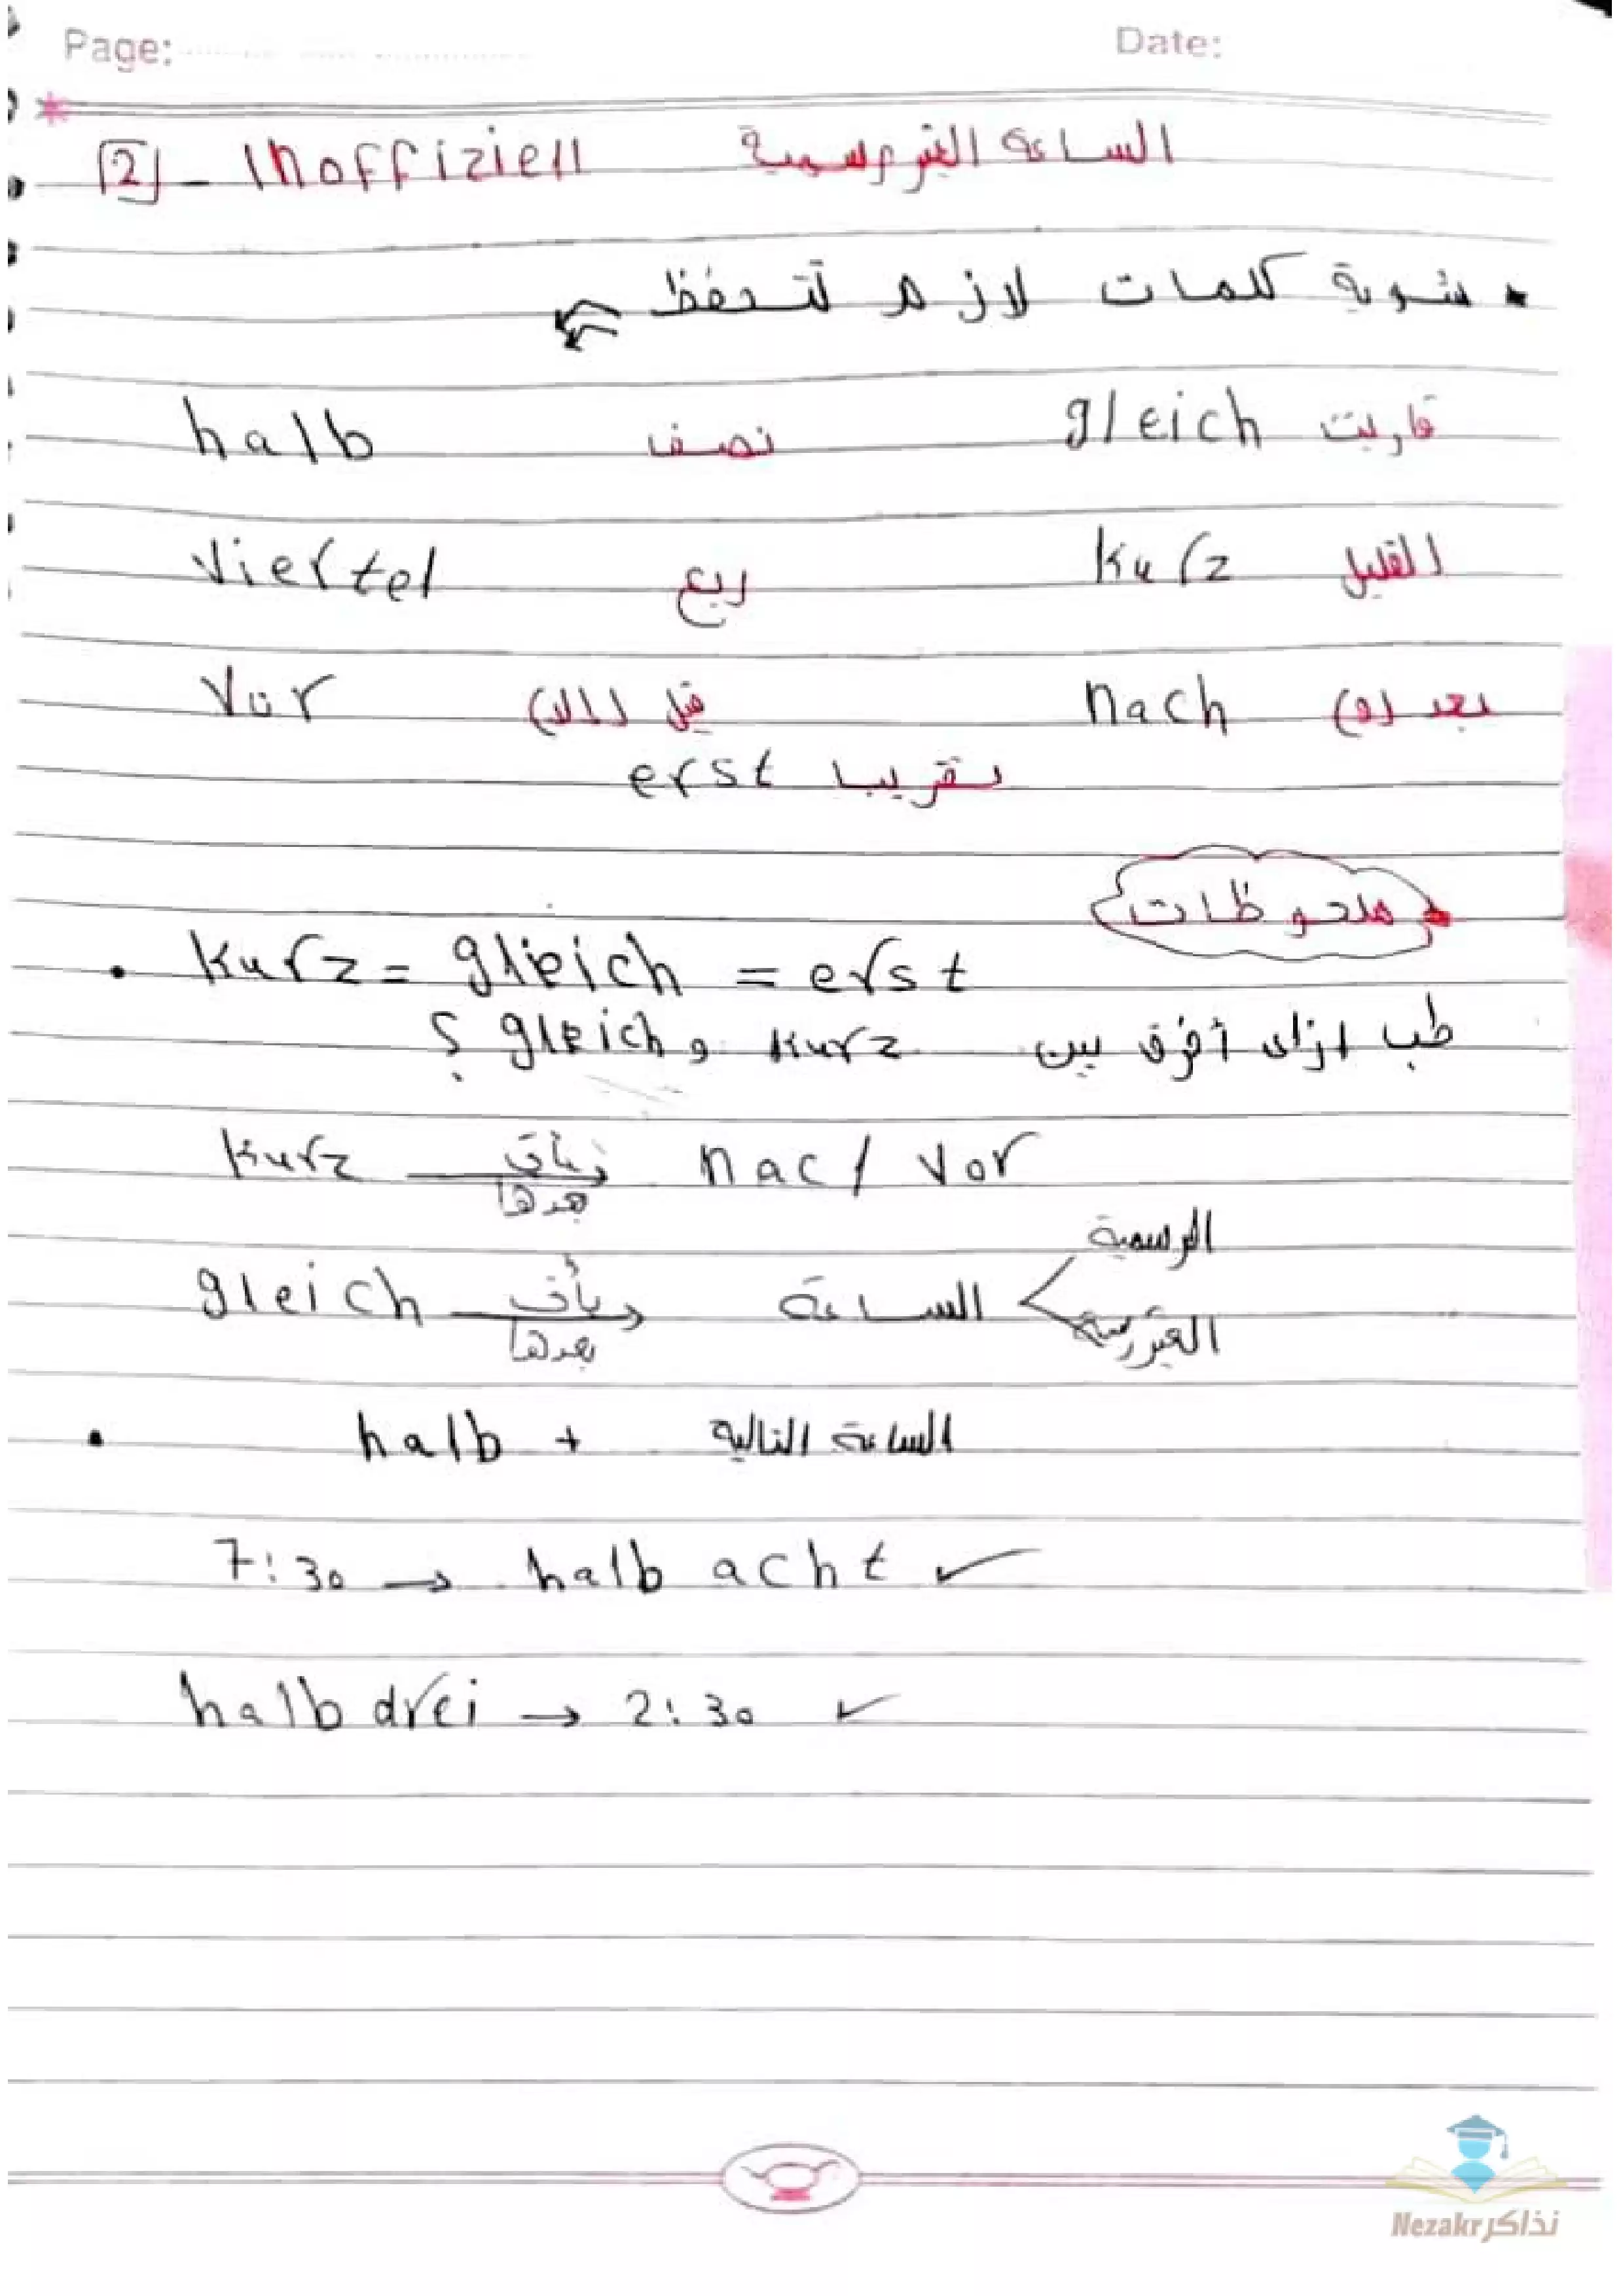 Page: Date:
[2] - Inoffiziell الساعة الغير رسمية
* شوية كلمات لازم تتحفظ
halb نصف gleich قاربت
Viertel ربع Kurz القليل
Vor قبل (إلا) nach بعد (و)
erst تقريبا
ملحوظات
• Kurz = gleich = erst
طب ازاى أفرق بين Kurz و gleich ؟
Kurz يأتى بعدها nac / Vor
الرسمية
gleich يأتى بعدها الساعة
الغير رسمية
• halb + الساعة التالية
7:30 → halb acht ✓
halb drei → 2:30 ✓
Nezakr نذاكر